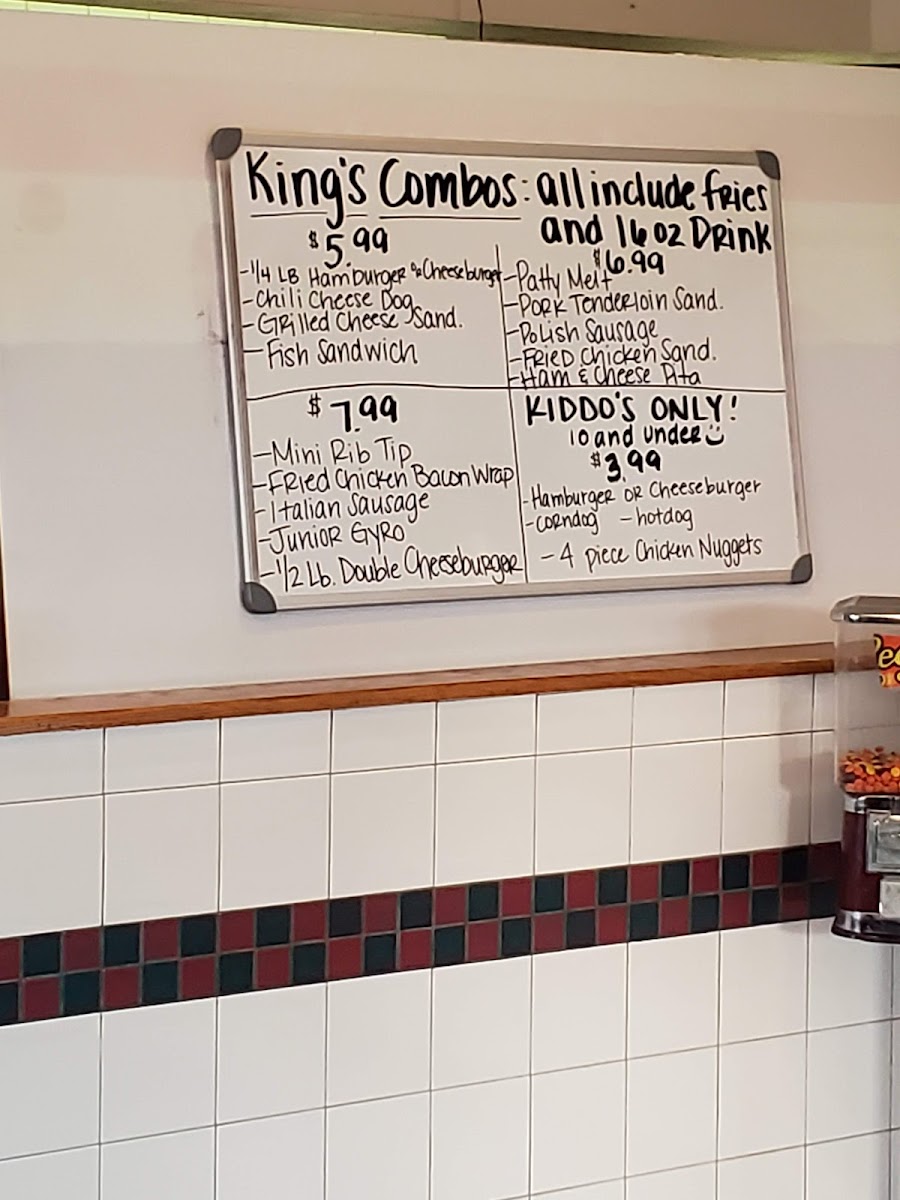 King's Combos: all include fries
and 16 oz Drink
$5.99
-1/4 LB Hamburger or Cheeseburger
-Chili Cheese Dog
-Grilled Cheese Sand.
-Fish Sandwich
$6.99
-Patty Melt
-Pork Tenderloin Sand.
-Polish Sausage
-Fried Chicken Sand.
-Ham & Cheese Pita
$7.99
-Mini Rib Tip
-Fried Chicken Bacon Wrap
-Italian Sausage
-Junior Gyro
-1/2 Lb. Double Cheeseburger
KIDDO'S ONLY!
10 and under
$3.99
-Hamburger or Cheeseburger
-corndog -hotdog
-4 piece Chicken Nuggets